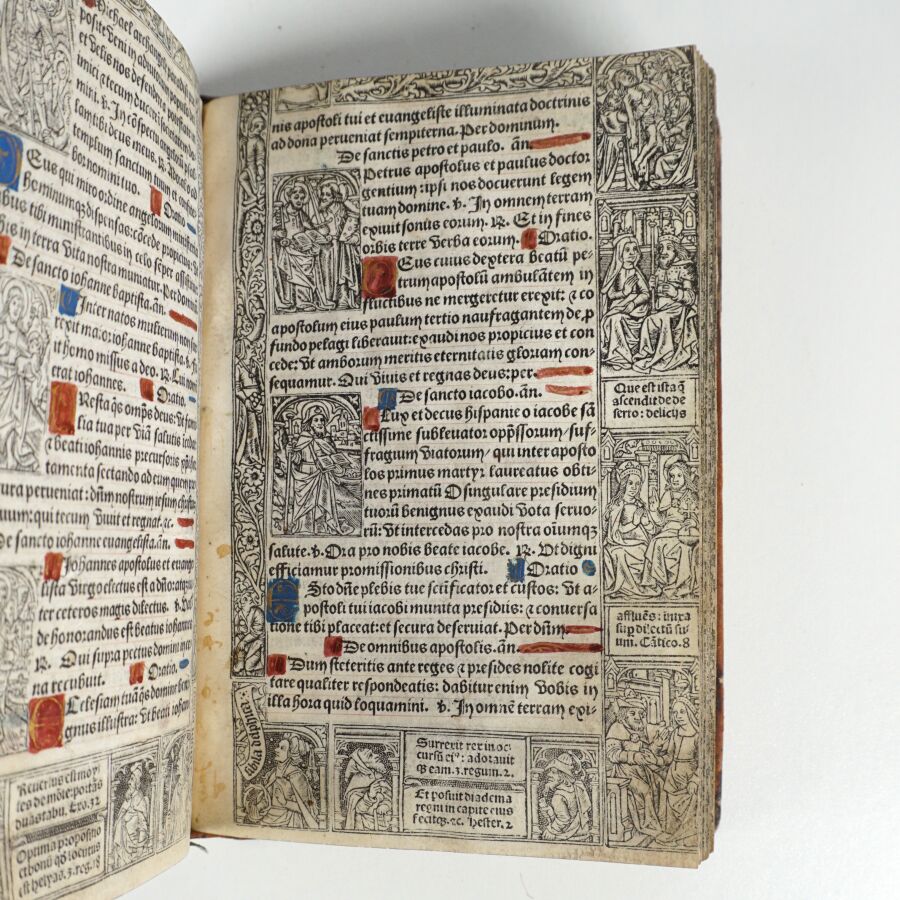 Michael archangele
posite veni in adiutoriũ populo
et velis nos defendere
imici ⁊ tecum ducere
mini. v̄. In cõspectu angelorũ
templum sanctum tuum
bor nomini tuo. Oratio
Deus qui miro ordine angelorum ministeria
hominumq̃ dispensas: cõcede propicius
bus tibi ministrantibus in celo semper assistitur
his in terra vita nostra muniatur. Per dominum
De sancto iohanne baptista. añ.
Inter natos mulierum non sur
rexit maior iohanne baptista. v̄. F
uit homo missus a deo. R̃. Cui nomen
erat iohannes. Oratio.
Presta q̃s omp̃s deus: vt fami
lia tua per viã salutis incedat
⁊ beati iohannis precursoris
tamenta sectando ad eum quem
tura perueniat: dñm nostrum iesum christum
uum: qui tecum viuit et regnat. ⁊c.
De sancto iohanne euangelista. añ.
Iohannes apostolus et euange
lista virgo electus est a dño: atq̃ in
ter ceteros magis dilectus. v̄. Val
de honorandus est beatus iohannes
R̃. Qui supra pectus domini in ce
na recubuit. Oratio.
Ecclesiam tuã q̃s domine beni
gnus illustra: vt beati iohan
Reuersus est moy
ses de mõte: portãs
duas tabu. Exo. 32
Optima propositio
et bonũ qd̃ locutus
est helyas. 3. reg. 18
nis apostoli tui et euangeliste illuminata doctrinis
ad dona perueniat sempiterna. Per dominum.
De sanctis petro et paulo. añ.
Petrus apostolus et paulus doctor
gentium: ipsi nos docuerunt legem
tuam domine. v̄. In omnem terram
exiuit sonus eorum. R̃. Et in fines
orbis terre verba eorum. Oratio.
Deus cuius dextera beatũ pe-
trum apostolũ ambulãtem in
fluctibus ne mergeretur erexit: ⁊ co
apostolum eius paulum tertio naufragantem de p̱
fundo pelagi liberauit: exaudi nos propicius et con
cede: vt amborum meritis eternitatis gloriam con-
sequamur. Qui viuis et regnas deus: per.
De sancto iacobo. añ.
Lux et decus hispanie o iacobe sã
ctissime subleuator opp̃ssorum, suf-
fragium viatorum, qui inter aposto
los primus martyr laureatus obti-
nes primatũ O singulare presidium
tuorũ benignus exaudi vota seruo-
rũ: vt intercedas pro nostra oĩumq̃
salute. v̄. Ora pro nobis beate iacobe. R̃. Vt digni
efficiamur promissionibus christi. Oratio
Esto dñe plebis tue scrificator et custos: vt a-
postoli tui iacobi munita presidiis: ⁊ conuersa
tione tibi placeat: et secura deseruiat. Per dñm.
De omnibus apostolis. añ.
Dum steteritis ante reges ⁊ presides nolite cogi
tare qualiter respondeatis: dabitur enim vobis in
illa hora quid loquamini. v̄. In omnẽ terram exi-
Que est ista q̃
ascendit de de
serto: delicijs
affluẽs: inixa
sup̱ dilectũ su
um. Cãtico. 8
Surrexit rex in oc-
cursũ eiꝰ: adorauit
Beam. 3. regum. 2.
Et posuit diadema
regni in capite eius
fecitq̃. ⁊c. Hester. 2